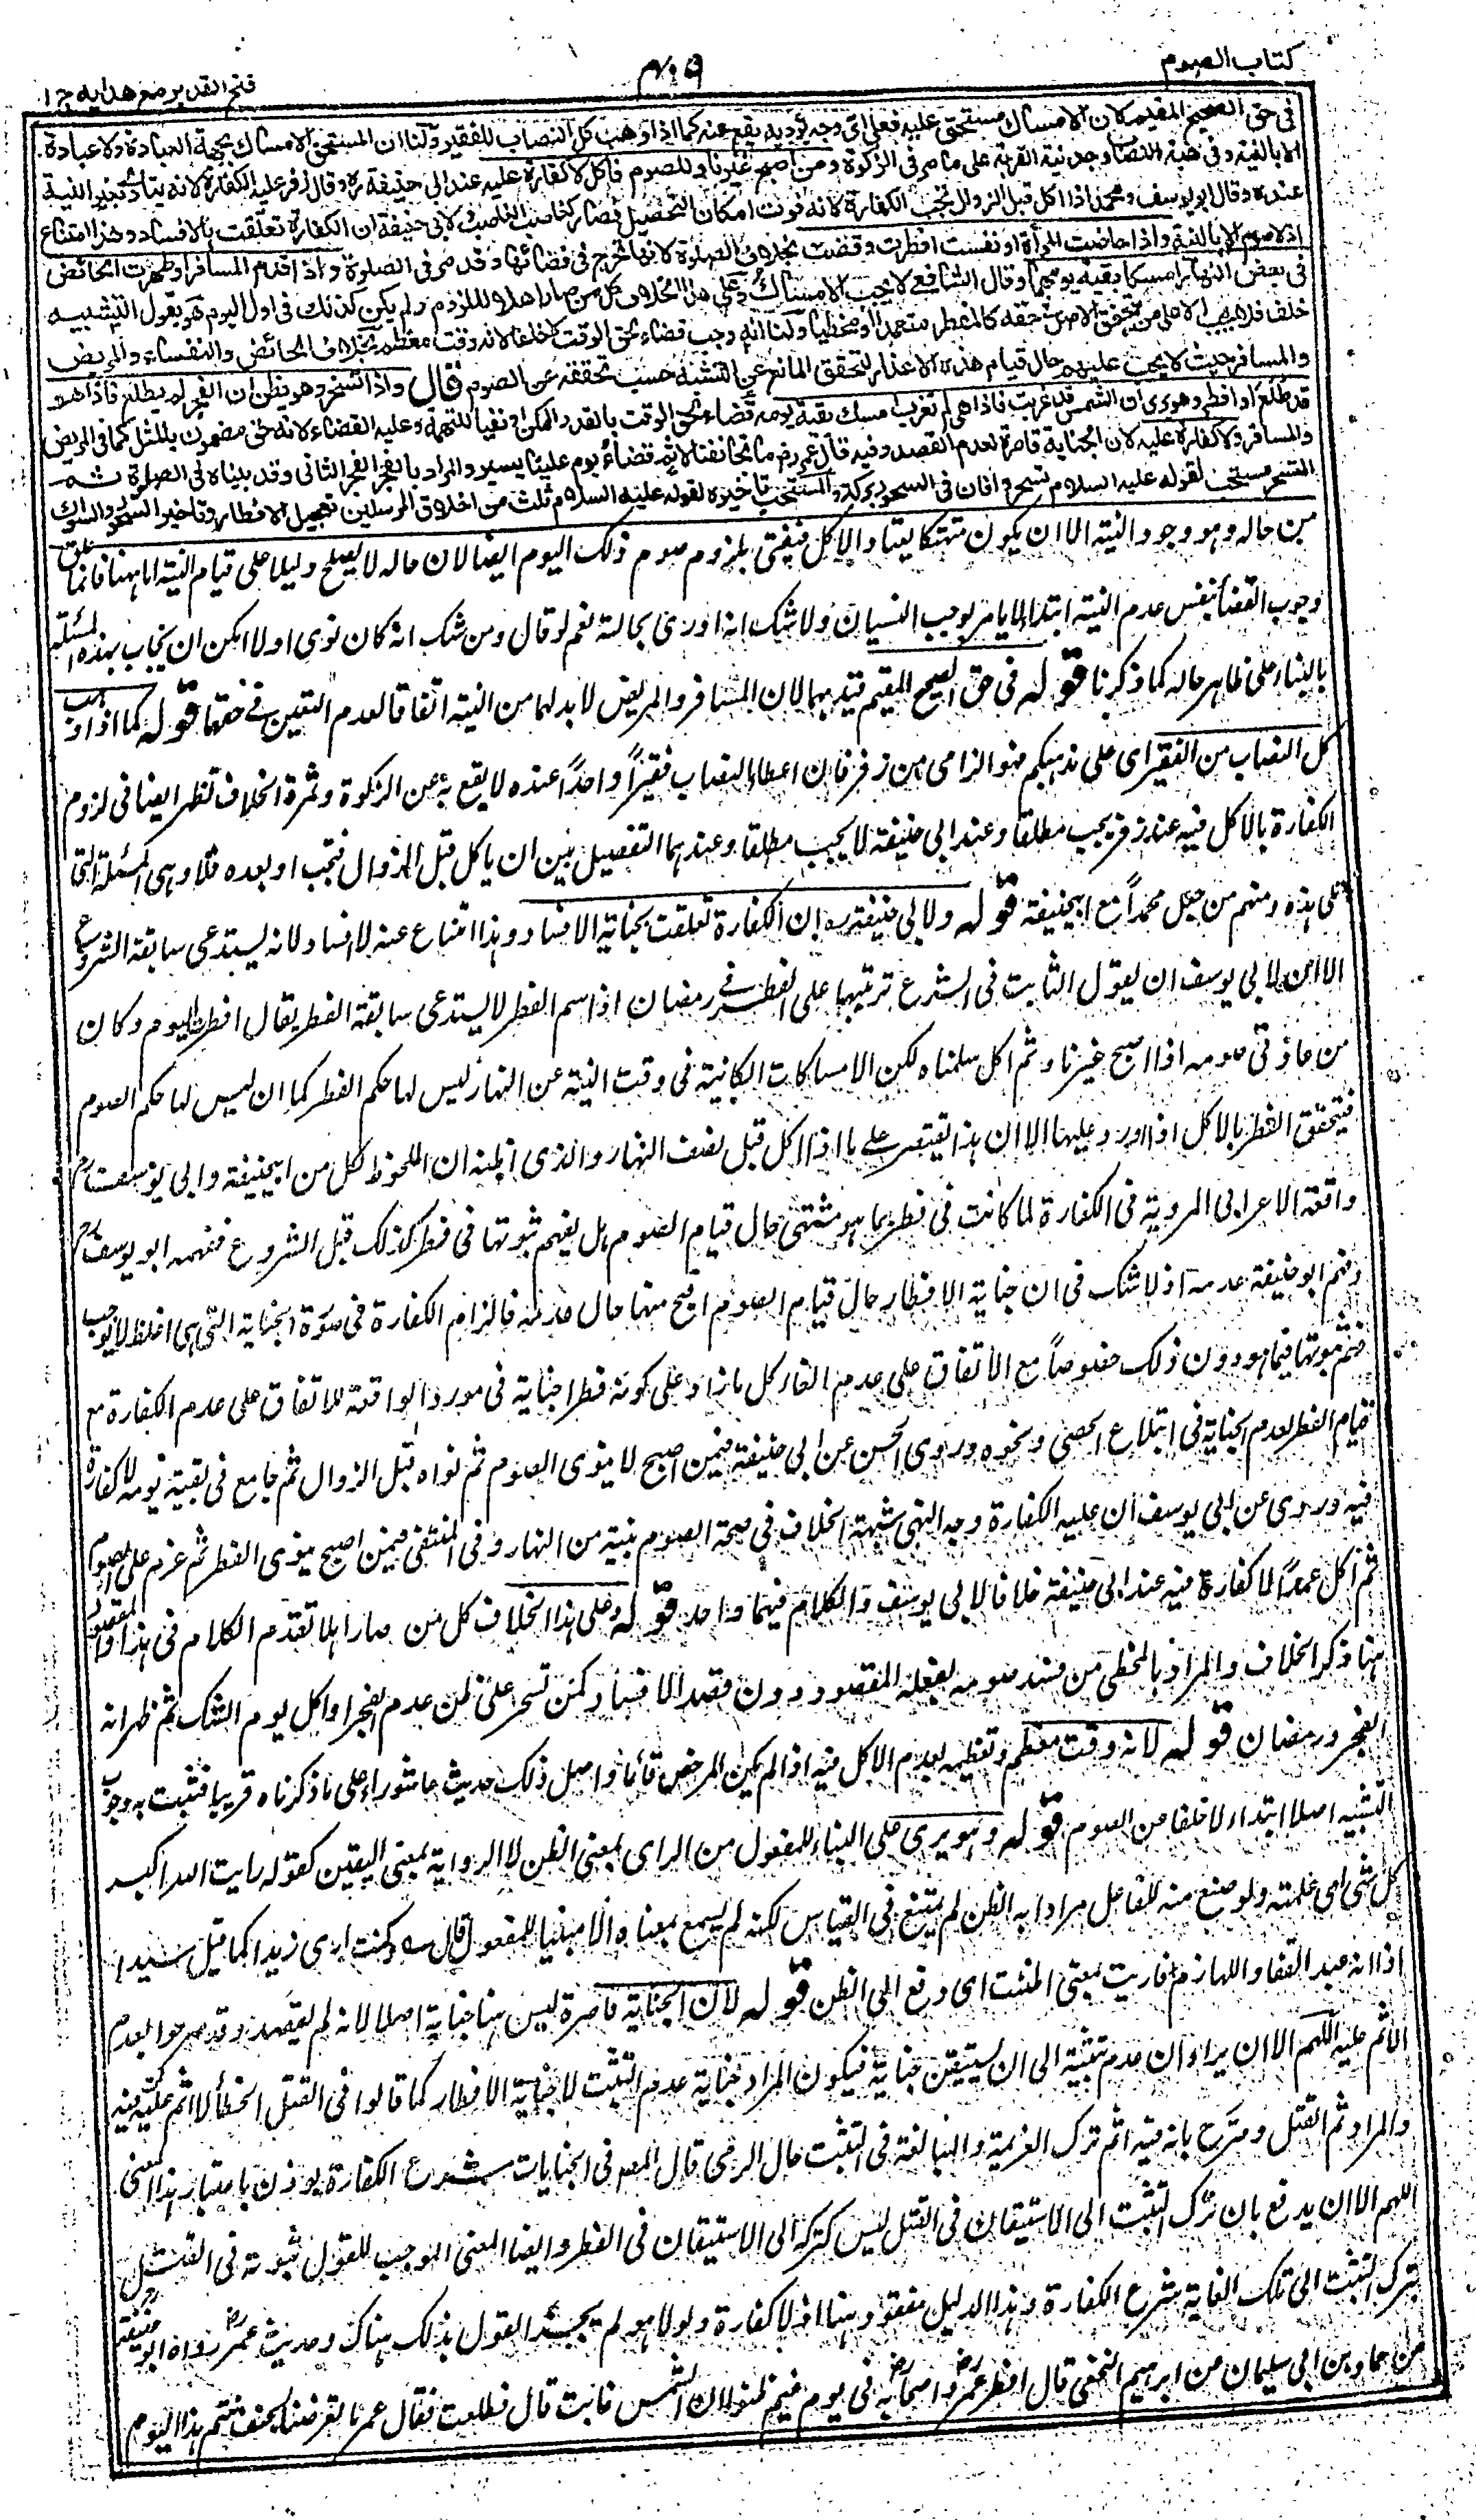 كتاب الصوم
٤٠٩
فتح القدير مع هدايه ج ١
في حق الصحيح المقيم لان الامساك مستحق عليه فعلى اي وجه يؤديه يقع عنه كما اذا وهب كل النصاب للفقير ولنا ان المستحق الامساك بجهة العبادة ولا عبادة
الا بالنية وفي هبة النصاب وجد نية القربة على ما مر في الزكوة ومن اصبح غير ناو للصوم فاكل لا كفارة عليه عند ابي حنيفة ره وقال زفر عليه الكفارة لانه يتادى بغير النية
عنده وقال ابو يوسف ومحمد اذا اكل قبل الزوال تجب الكفارة لانه فوت امكان التحصيل فصار كغاصب الغاصب ولابي حنيفة ان الكفارة تعلقت بالافساد وهذا امتناع
اذ لا صوم الا بالنية واذا حاضت المرأة او نفست افطرت وقضت بخلاف الصلوة لانها تحرج في قضائها وقد مر في الصلوة واذا قدم المسافر او طهرت الحائض
في بعض النهار امسكا بقية يومهما وقال الشافعي لا يجب الامساك وعلى هذا الخلاف كل من صار اهلا للزوم ولم يكن كذلك في اول اليوم هو يقول التشبيه
خلف فلا يجب الا على من تحقق الاصل في حقه كالمفطر متعمدا او مخطيا ولنا انه وجب قضاء لحق الوقت لا خلفا لانه وقت معظم بخلاف الحائض والنفساء والمريض
والمسافر حيث لا يجب عليهم حال قيام هذه الاعذار لتحقق المانع عن التشبه حسب تحققه عن الصوم قال واذا تسحر وهو يظن ان الفجر لم يطلع فاذا هو
قد طلع او افطر وهو يرى ان الشمس قد غربت فاذا هي لم تغرب امسك بقية يومه قضاء لحق الوقت بالقدر الممكن او نفيا للتهمة وعليه القضاء لانه حق مضمون بالمثل كما في المريض
والمسافر ولا كفارة عليه لان الجناية قاصرة لعدم القصد وفيه قال عمر رض ما تجانفنا لاثم قضاء يوم علينا يسير والمراد بالفجر الفجر الثاني وقد بيناه في الصلوة ثم
التسحر مستحب لقوله عليه السلام تسحروا فان في السحور بركة والمستحب تاخيره لقوله عليه السلام ثلث من اخلاق المرسلين تعجيل الافطار وتاخير السحور والسواك
من حاله وهو وجود النية الا ان يكون متهتكا يعتاد الاكل فيفتى بلزوم صوم ذلك اليوم ايضا لان حاله لا يصلح دليلا على قيام النية اما ههنا فانما علق
وجوب القضاء بنفس عدم النية ابتداء لا بامر يوجب النسيان ولا شك انه ادرى بحاله نعم لو قال ومن شك انه كان نوى اولا امكن ان يجاب بهذه المسئلة
بالبناء على ظاهر حاله كما ذكرنا قوله في حق الصحيح المقيم قيد بهما لان المسافر والمريض لا بد لهما من النية اتفاقا لعدم التعين في حقهما قوله كما اذا وهب
كل النصاب من الفقير اى على مذهبكم فهو الزامى من زفر فان اعطاء النصاب فقيرا واحدا عنده لا يقع به عن الزكوة وثمرة الخلاف تظهر ايضا في لزوم
الكفارة بالاكل فيه عند زفر يجب مطلقا وعند ابي حنيفة لا يجب مطلقا وعندهما التفصيل بين ان ياكل قبل الزوال فتجب او بعده فلا وهي المسئلة التي
تلي هذه ومنهم من جعل محمدا مع ابيحنيفة قوله ولابي حنيفة ره ان الكفارة تعلقت بجناية الافساد وهذا امتناع عنه لا افساد لانه يستدعى سابقة الشروع
الا ان لابي يوسف ان يقول الثابت في الشرع ترتيبها على الفطر في رمضان اذ اسم الفطر لا يستدعى سابقة الفطر يقال افطرت اليوم وكان
من عادتي صومه اذا اصبح غير ناو ثم اكل سلمناه لكن الامساكات الكائنة في وقت النية عن النهار ليس لها حكم الفطر كما ان ليس لها حكم الصوم
فيتحقق الفطر بالاكل اذا ورد عليها الا ان هذا يقتصر على ما اذا اكل قبل نصف النهار والذى اظنه ان الملحوظ لكل من ابيحنيفة وابي يوسف رح
واقعة الاعرابي المروية في الكفارة لما كانت في فطر بما هو مشتهى حال قيام الصوم هل يفهم ثبوتها في فطر كذلك قبل الشروع ففهمه ابو يوسف رح
وفهم ابو حنيفة عدمه اذ لا شك في ان جناية الافطار حال قيام الصوم اقبح منها حال عدمه فالزام الكفارة في صورة الجناية التي هي اغلظ لا يوجب
فهم ثبوتها فيما هو دون ذلك خصوصا مع الاتفاق على عدم الغاء كل ما زاد على كونه فطرا جناية في مورد الواقعة للاتفاق على عدم الكفارة مع
قيام الفطر لعدم الجناية في ابتلاع الحصى ونحوه وروى الحسن عن ابي حنيفة فيمن اصبح لا ينوى الصوم ثم نواه قبل الزوال ثم جامع في بقية يومه لا كفارة
فيه وروى عن ابي يوسف ان عليه الكفارة وجه النهي شبهة الخلاف في صحة الصوم بنية من النهار وفي المنتقى فيمن اصبح ينوى الفطر ثم عزم على الصوم
ثم اكل عمدا لا كفارة فيه عند ابي حنيفة خلافا لابي يوسف والكلام فيهما واحد قوله وعلى هذا الخلاف كل من صار اهلا تقدم الكلام في هذا والمقصود
هنا ذكر الخلاف والمراد بالمخطى من فسد صومه بفعله المقصود دون قصد الافساد كمن تسحر على ظن عدم الفجر او اكل يوم الشك ثم ظهر انه
الفجر ورمضان قوله لانه وقت معظم وتعظيمه لعدم الاكل فيه اذا لم يكن المرخص قائما واصل ذلك حديث عاشوراء على ما ذكرناه قريبا فثبت به وجوب
التشبيه اصلا ابتداء لا خلفا من الصوم قوله وهو يرى على البناء للمفعول من الراى بمعنى الظن لا الرواية بمعنى اليقين كقوله رايت الله اكبر
كل شئ اى علمته ولو صنع منه للفاعل مرادا به الظن لم يمتنع في القياس لكنه لم يسمع بمعناه الا مبنيا للمفعول قال وكنت ارى زيدا كما قيل سيدا
اذا انه عبد القفا واللهازم فاريت بمعنى اظننت اى دفع الى الظن قوله لان الجناية قاصرة ليس هنا جناية اصلا لانه لم يقصد وقد صرحوا بعدم
الاثم عليه اللهم الا ان يراد ان عدم تثبته الى ان يستيقن جناية فيكون المراد جناية عدم التثبت لا جناية الافطار كما قالوا في القتل الخطأ لا اثم عليه فيه
والمراد اثم القتل وصرح بانه فيه اثم ترك العزيمة والمبالغة في التثبت حال الرمى قال المصر في الجنايات شرع الكفارة يوذن باعتبار هذا المعنى
اللهم الا ان يدفع بان ترك التثبت الى الاستيقان في القتل ليس كتركه الى الاستيقان في الفطر وايضا المعنى الموجب للقول ثبوته في القتل
بترك التثبت الى تلك الغاية شرع الكفارة وهذا الدليل مفقود هنا اذ لا كفارة ولولا هو لم يجب القول بذلك هناك وحديث عمر رض رواه ابو حنيفة رح
من حماد بن ابي سليمان من ابرهيم النخعي قال افطر عمر رض واصحابه رض في يوم غيم ظنوا ان الشمس غابت قال فطلعت فقال عمر ما تعرضنا لجنف نتم هذا اليوم